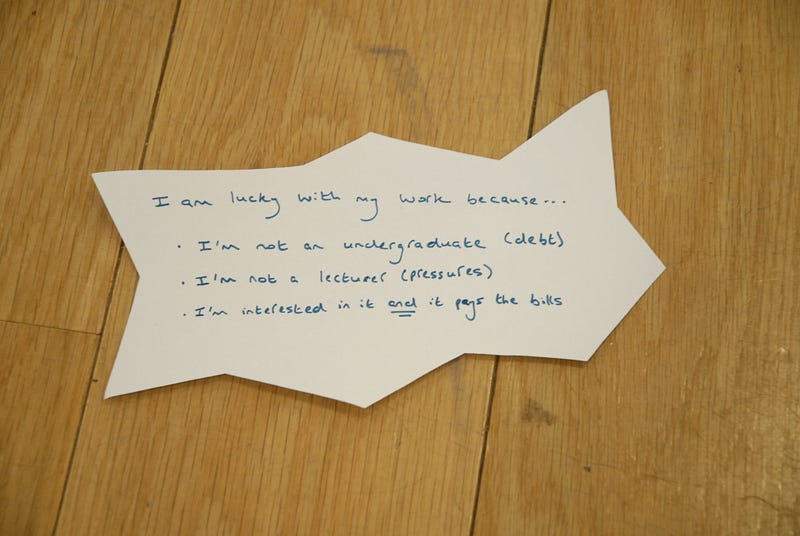 I am lucky with my work because...
· I'm not an undergraduate (debt)
· I'm not a lecturer (pressures)
· I'm interested in it and it pays the bills